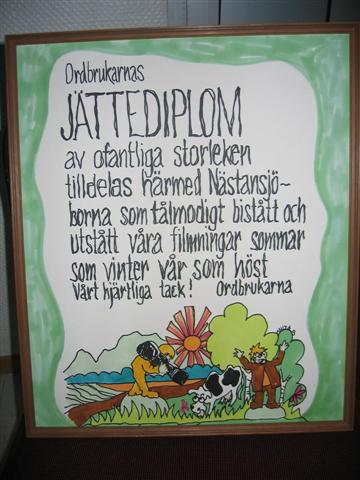 Ordbrukarnas
JÄTTEDIPLOM
av ofantliga storleken
tilldelas härmed Nästansjö-
borna som tålmodigt bistått och
utstått våra filmningar sommar
som vinter vår som höst
Vårt hjärtliga tack! Ordbrukarna